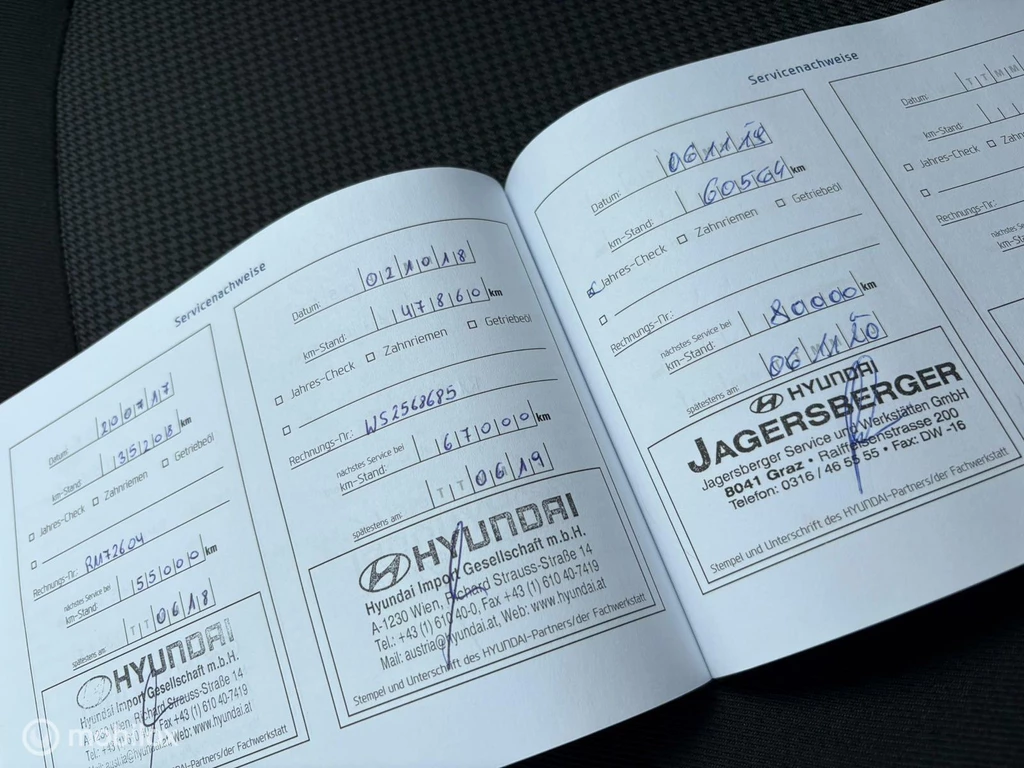 Servicenachweise
Datum: 200717
km-Stand: 35208 km
Jahres-Check Zahnriemen Getriebeöl
Rechnungs-Nr: RM72604
nächstes Service bei
km-Stand: 55000 km
spätestens am: TT0618
HYUNDAI
Hyundai Import Gesellschaft m.b.H.
Wien, Richard Strauss-Straße 14
Fax +43 (1) 610 40-7419
Mail: austria@hyundai.at, Web: www.hyundai.at
HYUNDAI-Partners/der Fachwerkstatt
Datum: 021018
km-Stand: 47860 km
Jahres-Check Zahnriemen Getriebeöl
Rechnungs-Nr.: WS2568685
nächstes Service bei
km-Stand: 67000 km
spätestens am: TT0619
HYUNDAI
Hyundai Import Gesellschaft m.b.H.
A-1230 Wien, Richard Strauss-Straße 14
Tel.: +43 (1) 610 40-0, Fax +43 (1) 610 40-7419
Mail: austria@hyundai.at, Web: www.hyundai.at
Stempel und Unterschrift des HYUNDAI-Partners/der Fachwerkstatt
Servicenachweise
Datum: 061119
km-Stand: 60564 km
Jahres-Check Zahnriemen Getriebeöl
Rechnungs-Nr.:
nächstes Service bei
km-Stand: 80000 km
spätestens am: 061120
HYUNDAI
JAGERSBERGER
Jagersberger Service und Werkstätten GmbH
8041 Graz • Raiffeisenstrasse 200
Telefon: 0316 / 46 55 55 • Fax: DW -16
Stempel und Unterschrift des HYUNDAI-Partners/der Fachwerkstatt
Datum: TTMM
km-Stand:
Jahres-Check Zahn
Rechnungs-Nr.:
nächstes S
km-Sta
mobilox